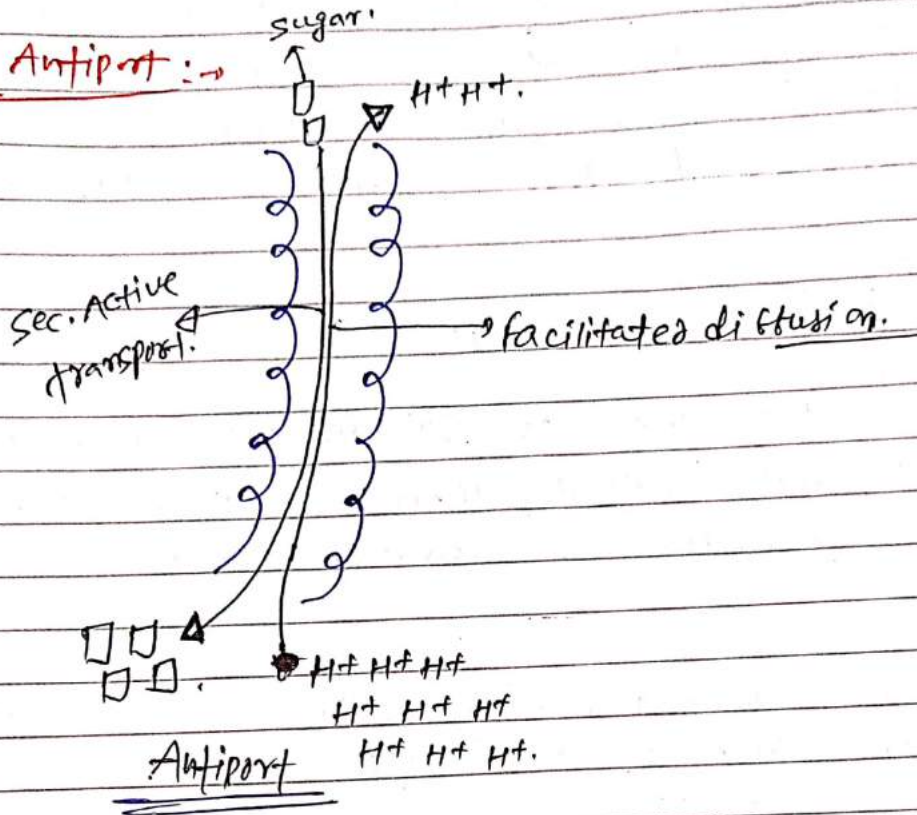 sugar.
Antiport :→
H+ H+.
Sec. Active
transport.
facilitated diffusion.
H+ H+ H+
H+ H+ H+
H+ H+ H+.
Antiport